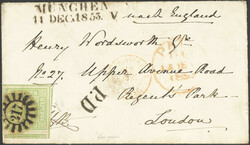 MÜNCHEN
11 DEC. 1855. V
nach England
Henry Wordsworth Jr.
No 27. Upper Avenue Road
Regents Park
London
P.D.
217